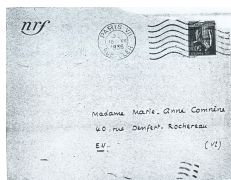 nrf
PARIS VI
1935
Madame Marie-Anne Comnène
40, rue Denfert-Rochereau
E.V.
(VI)